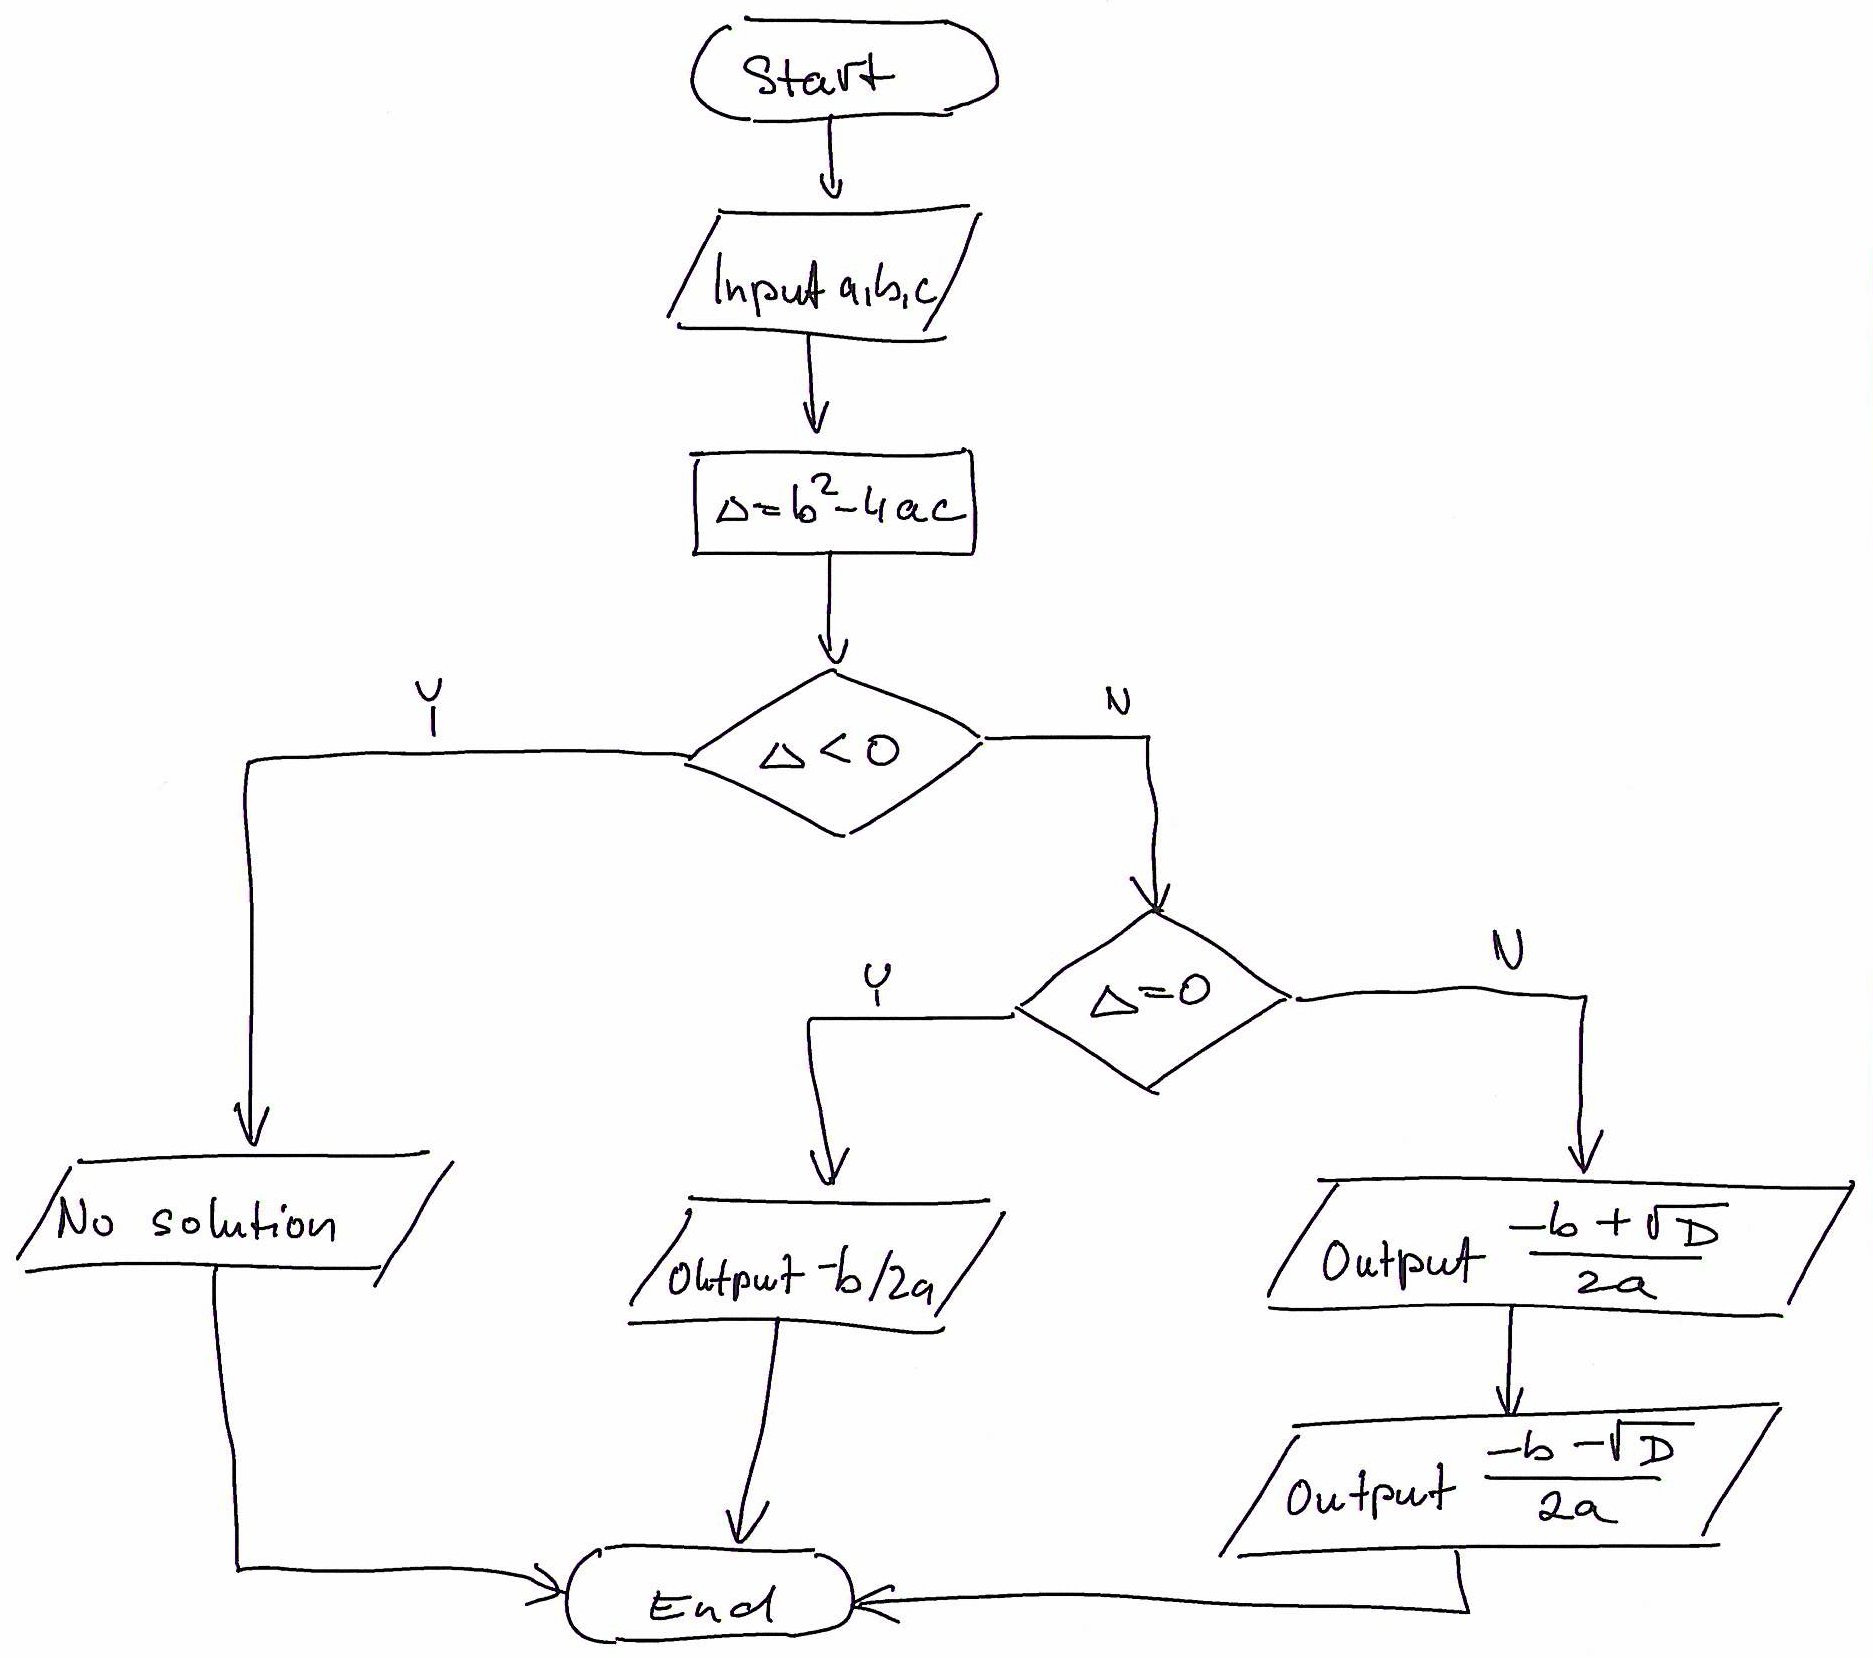 Start
Input a,b,c
Δ=b²-4ac
Y
Δ<0
N
Y
Δ=0
N
No solution
Output -b/2a
Output (-b+√D)/2a
Output (-b-√D)/2a
End